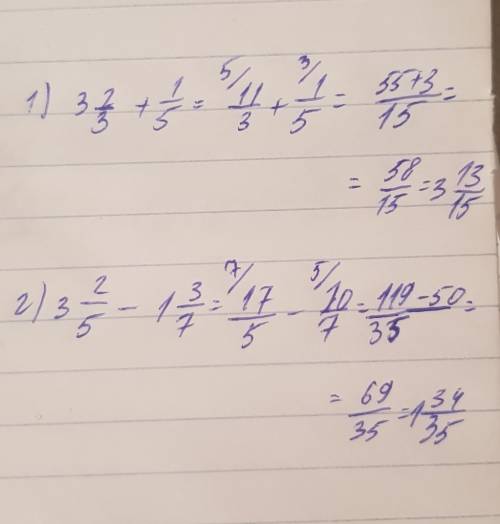 1) 3 2/3 + 1/5 = ⁵⁄ 11/3 + ³⁄ 1/5 = 55+3/15 =
= 58/15 = 3 13/15
2) 3 2/5 - 1 3/7 = ⁷⁄ 17/5 - ⁵⁄ 10/7 = 119-50/35 =
= 69/35 = 1 34/35